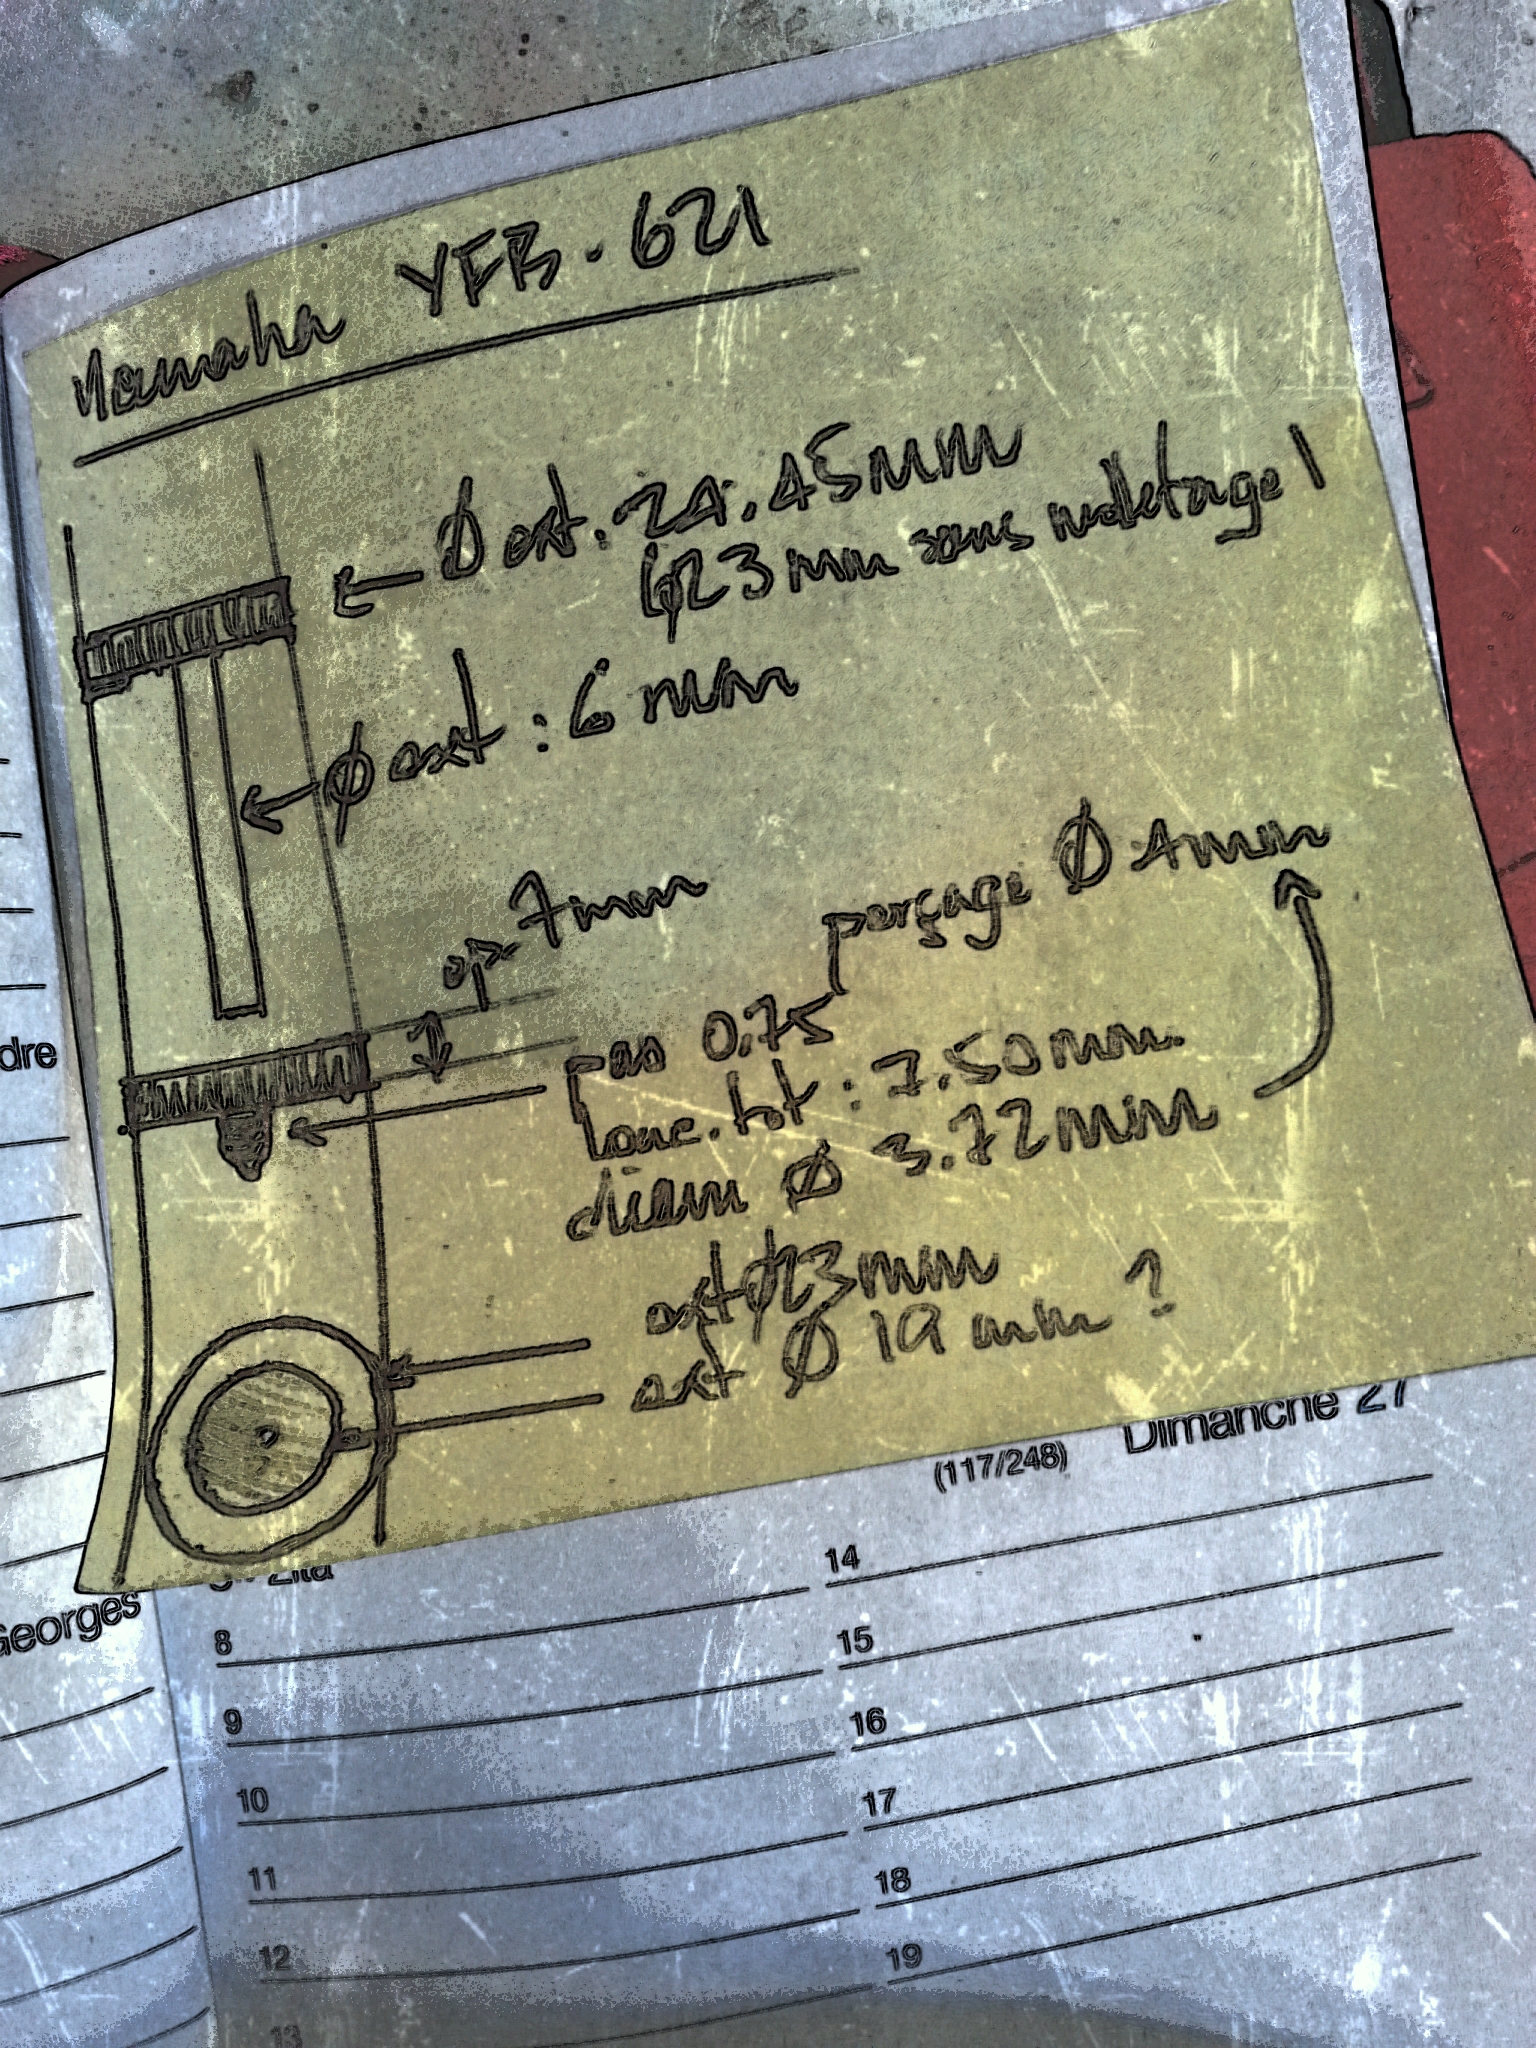 Yamaha YFB-621
Ø ext. 24.45mm
Ø23 mm sans moletage !
Ø ext : 6 mm
ep. 7mm
perçage Ø 4mm
Pas 0.75
Long. tot : 7.50mm.
diam Ø 3.72mm
ext Ø23mm
ext Ø 19 mm ?
dre
Dimanche 27
(117/248)
Zita
Georges
8
9
10
11
12
13
14
15
16
17
18
19